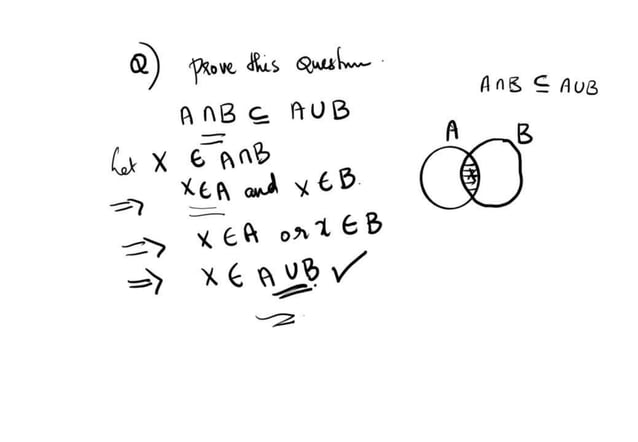 Q) Prove this Question.
A∩B ⊆ A∪B
Let x ∈ A∩B
⇒ x∈A and x∈B.
⇒ x∈A or x∈B
⇒ x∈ A∪B ✓
A∩B ⊆ A∪B
A B
x